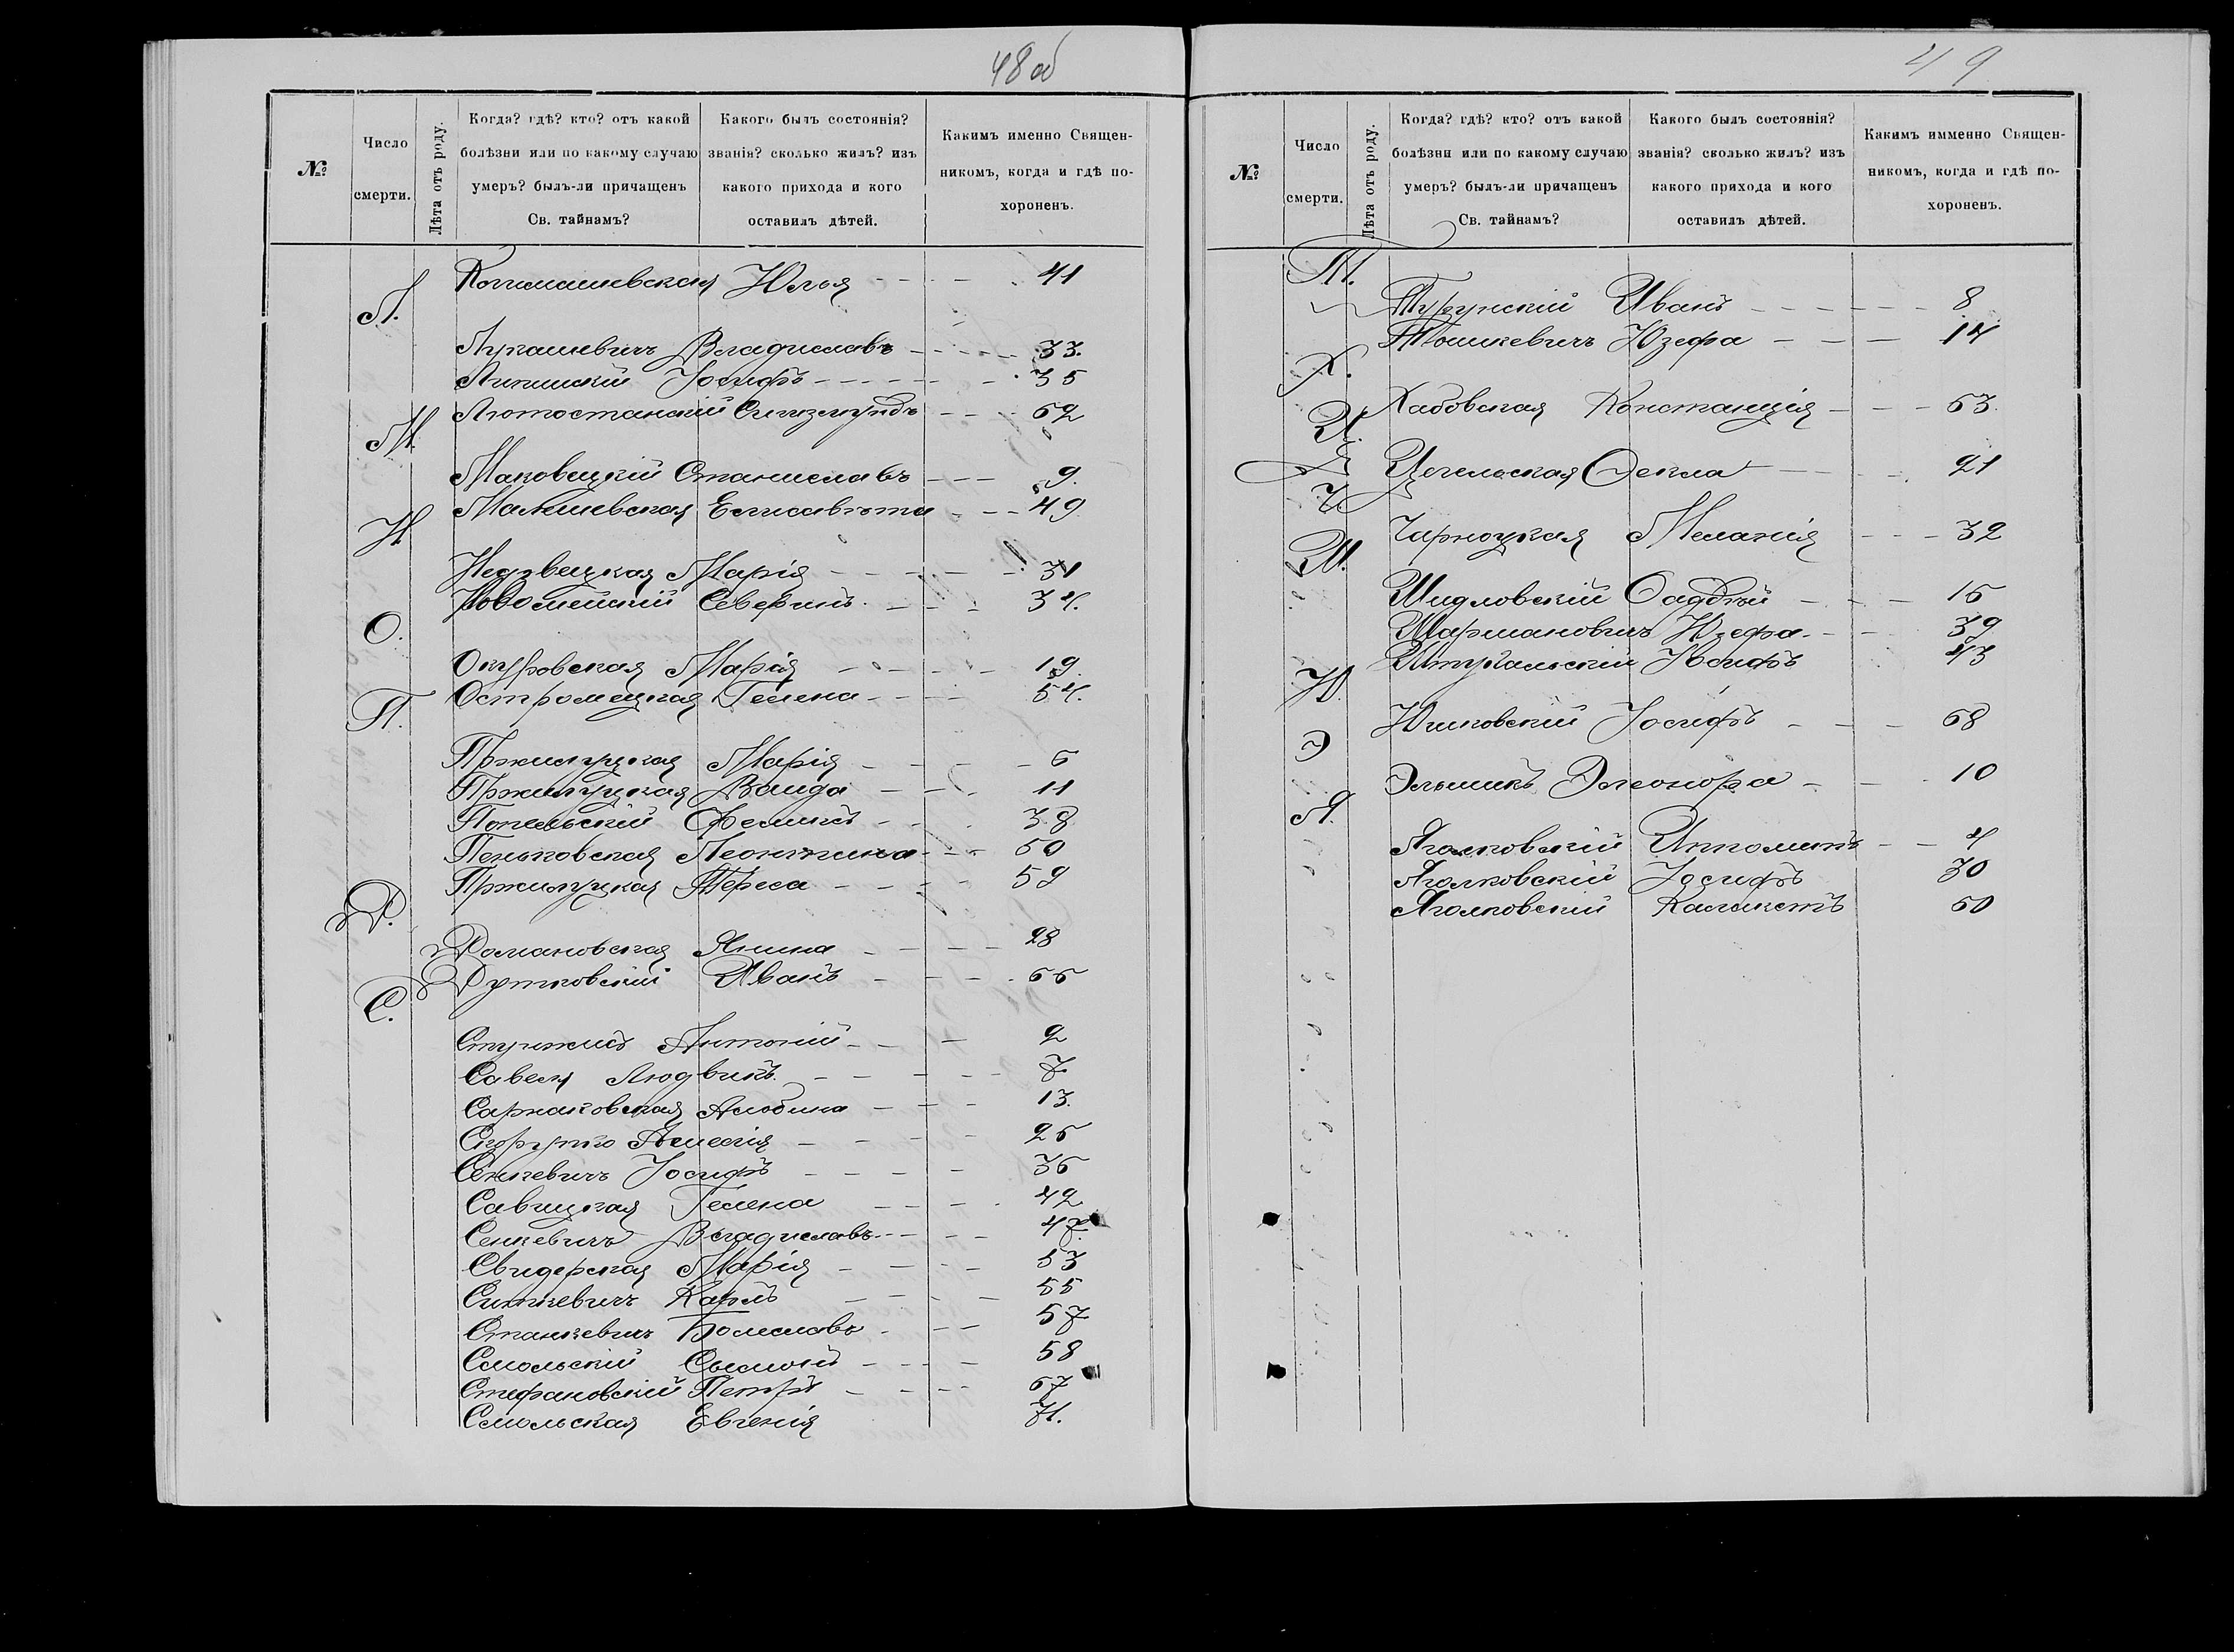 48 об
№
Число смерти.
Лѣта отъ роду.
Когда? гдѣ? кто? отъ какой болѣзни или по какому случаю умеръ? былъ-ли причащенъ Св. тайнамъ?
Какого былъ состоянія? званія? сколько жилъ? изъ какого прихода и кого оставилъ дѣтей.
Какимъ именно Священникомъ, когда и гдѣ похороненъ.
Юлья - - - 41
Л.
Лукашевичъ Владиславъ - - - 33.
Липинскій Іосифъ - - - 35
Лютостанскій Сигизмундъ - - - 62
М.
Маковецкій Станиславъ - - - 9.
Малишевская Елисавѣта - - - 49
Н
Недзвецкая Марія - - - 31
Новомейскій Северинъ - - - 34.
О.
Окуровская Марія - - - 19.
Остромецкая Гелена - - - 54.
П.
Пржилуцкая Марія - - - 6
Пржилуцкая Ванда - - - 11
Попельскій Феликсъ - - - 38
Пеньковская Леонтина - - - 50
Пржилуцкая Тереса - - - 59
Р.
Романовская Янина - - - 28
Рутковскій Иванъ - - - 66
С.
Антоній - - - 2
Людвикъ - - - 7
Сарнаковская Альбина - - - 13.
- - - 26
Сенкевичъ Іосифъ - - - 36
Савицкая Гелена - - - 42
Сенкевичъ Владиславъ - - - 47.
Свидерская Марія - - - 53
Ситкевичъ Карлъ - - - 55
Станкевичъ Болеславъ - - - 57
Смольскій - - - 58
Стефановскій Петръ - - - 67
Смольская Евгенія 71.
49
№
Число смерти.
Лѣта отъ роду.
Когда? гдѣ? кто? отъ какой болѣзни или по какому случаю умеръ? былъ-ли причащенъ Св. тайнамъ?
Какого былъ состоянія? званія? сколько жилъ? изъ какого прихода и кого оставилъ дѣтей.
Какимъ имменно Священникомъ, когда и гдѣ похороненъ.
Т.
Турунскій Иванъ - - - 8
Тошкевичъ Юзефа - - - 14
Х.
Хабовская Констанція - - - 63.
Ц.
Цегельская Фекла - - - 21
Ч.
Чарноцкая Меланія - - - 32
Ш.
Шидловскій Фаддѣй - - - 15
Шармановичъ Юзефа - - - 39
Штукальскій Іосифъ 43
Ю.
Юшковскій Іосифъ - - - 68
Э
Элеонора - - - 10
Я.
Яголковскій Ипполитъ - - 4
Яголковскій Іосифъ 30
Яголковскій Каликстъ 60